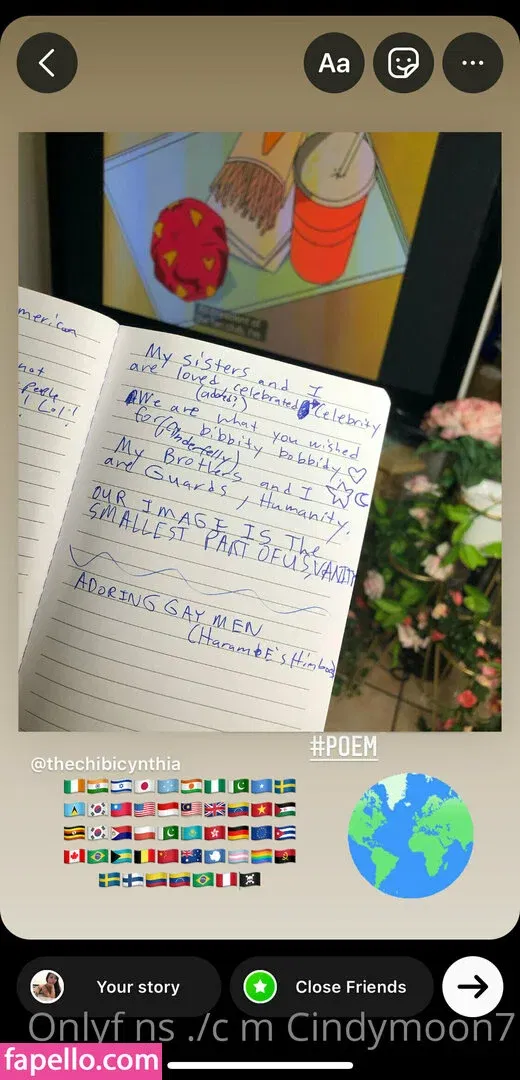 Aa
merican
not
Lol!
My sisters and I
are loved, celebrated Celebrity
We are what you wished
for bibbity bobbidy
My Brothers and I
are Guards, Humanity.
OUR IMAGE IS The
SMALLEST PART OF US, VANITY
ADORING GAY MEN
#POEM
@thechibicynthia
Your story
Close Friends
Onlyf ns ./c m Cindymoon7
fapello.com